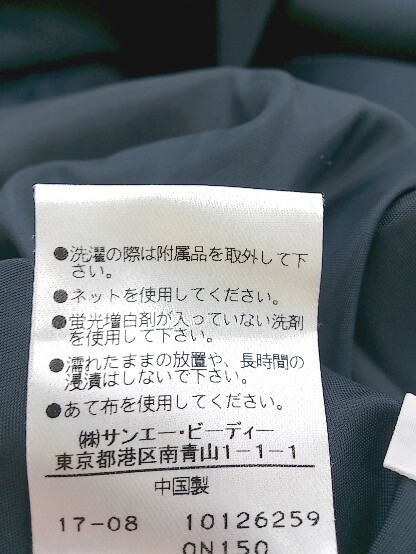 ●洗濯の際は附属品を取外して下
さい。
●ネットを使用してください。
●蛍光増白剤が入っていない洗剤
を使用して下さい。
●濡れたままの放置や、長時間の
浸漬はしないで下さい。
●あて布を使用してください。
㈱サンエー・ビーディー
東京都港区南青山1-1-1
中国製
17-08 10126259
0N150